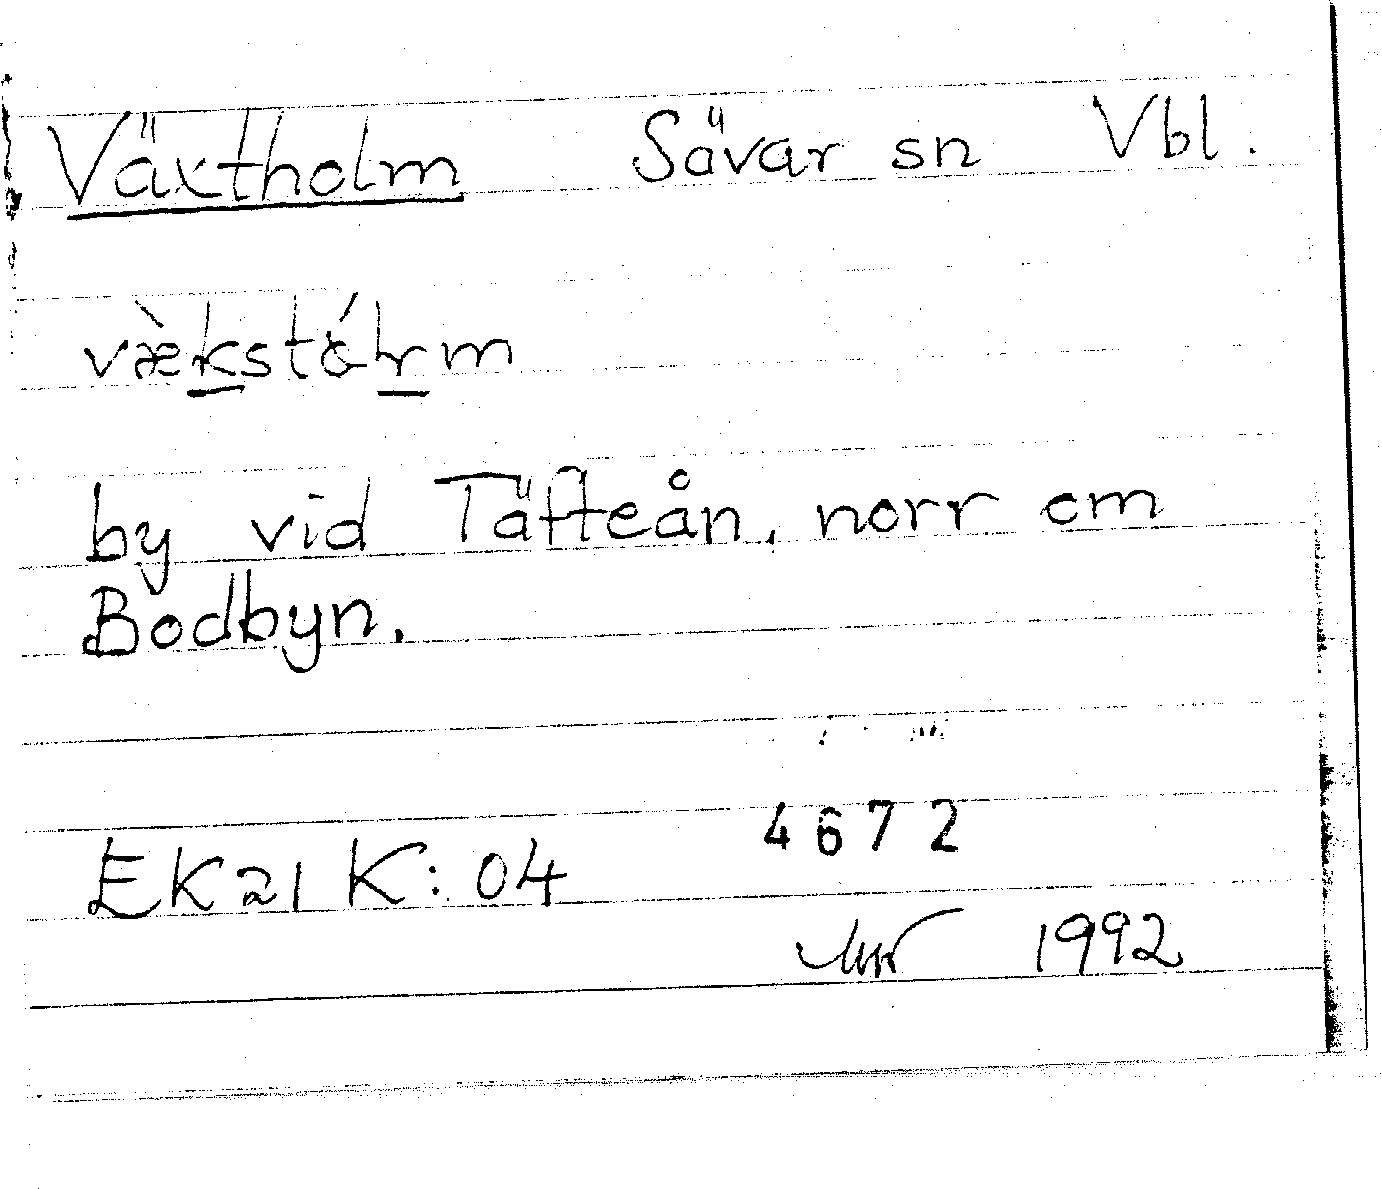 Växtholm Sävar sn Vbl.
væ̀kstóhrm
by vid Täfteån, norr om
Bodbyn.
4672
EK21K:04
1992